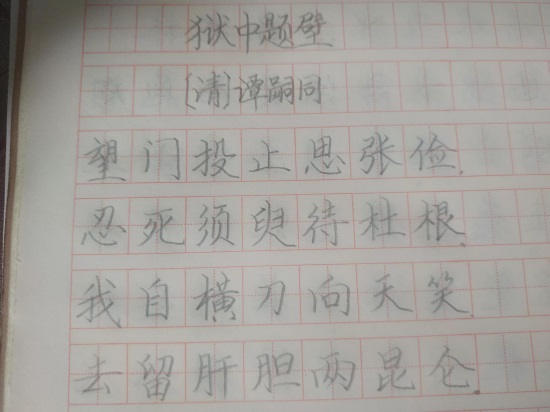 狱中题壁
[清]谭嗣同
望门投止思张俭.
忍死须臾待杜根.
我自横刀向天笑.
去留肝胆两昆仑.